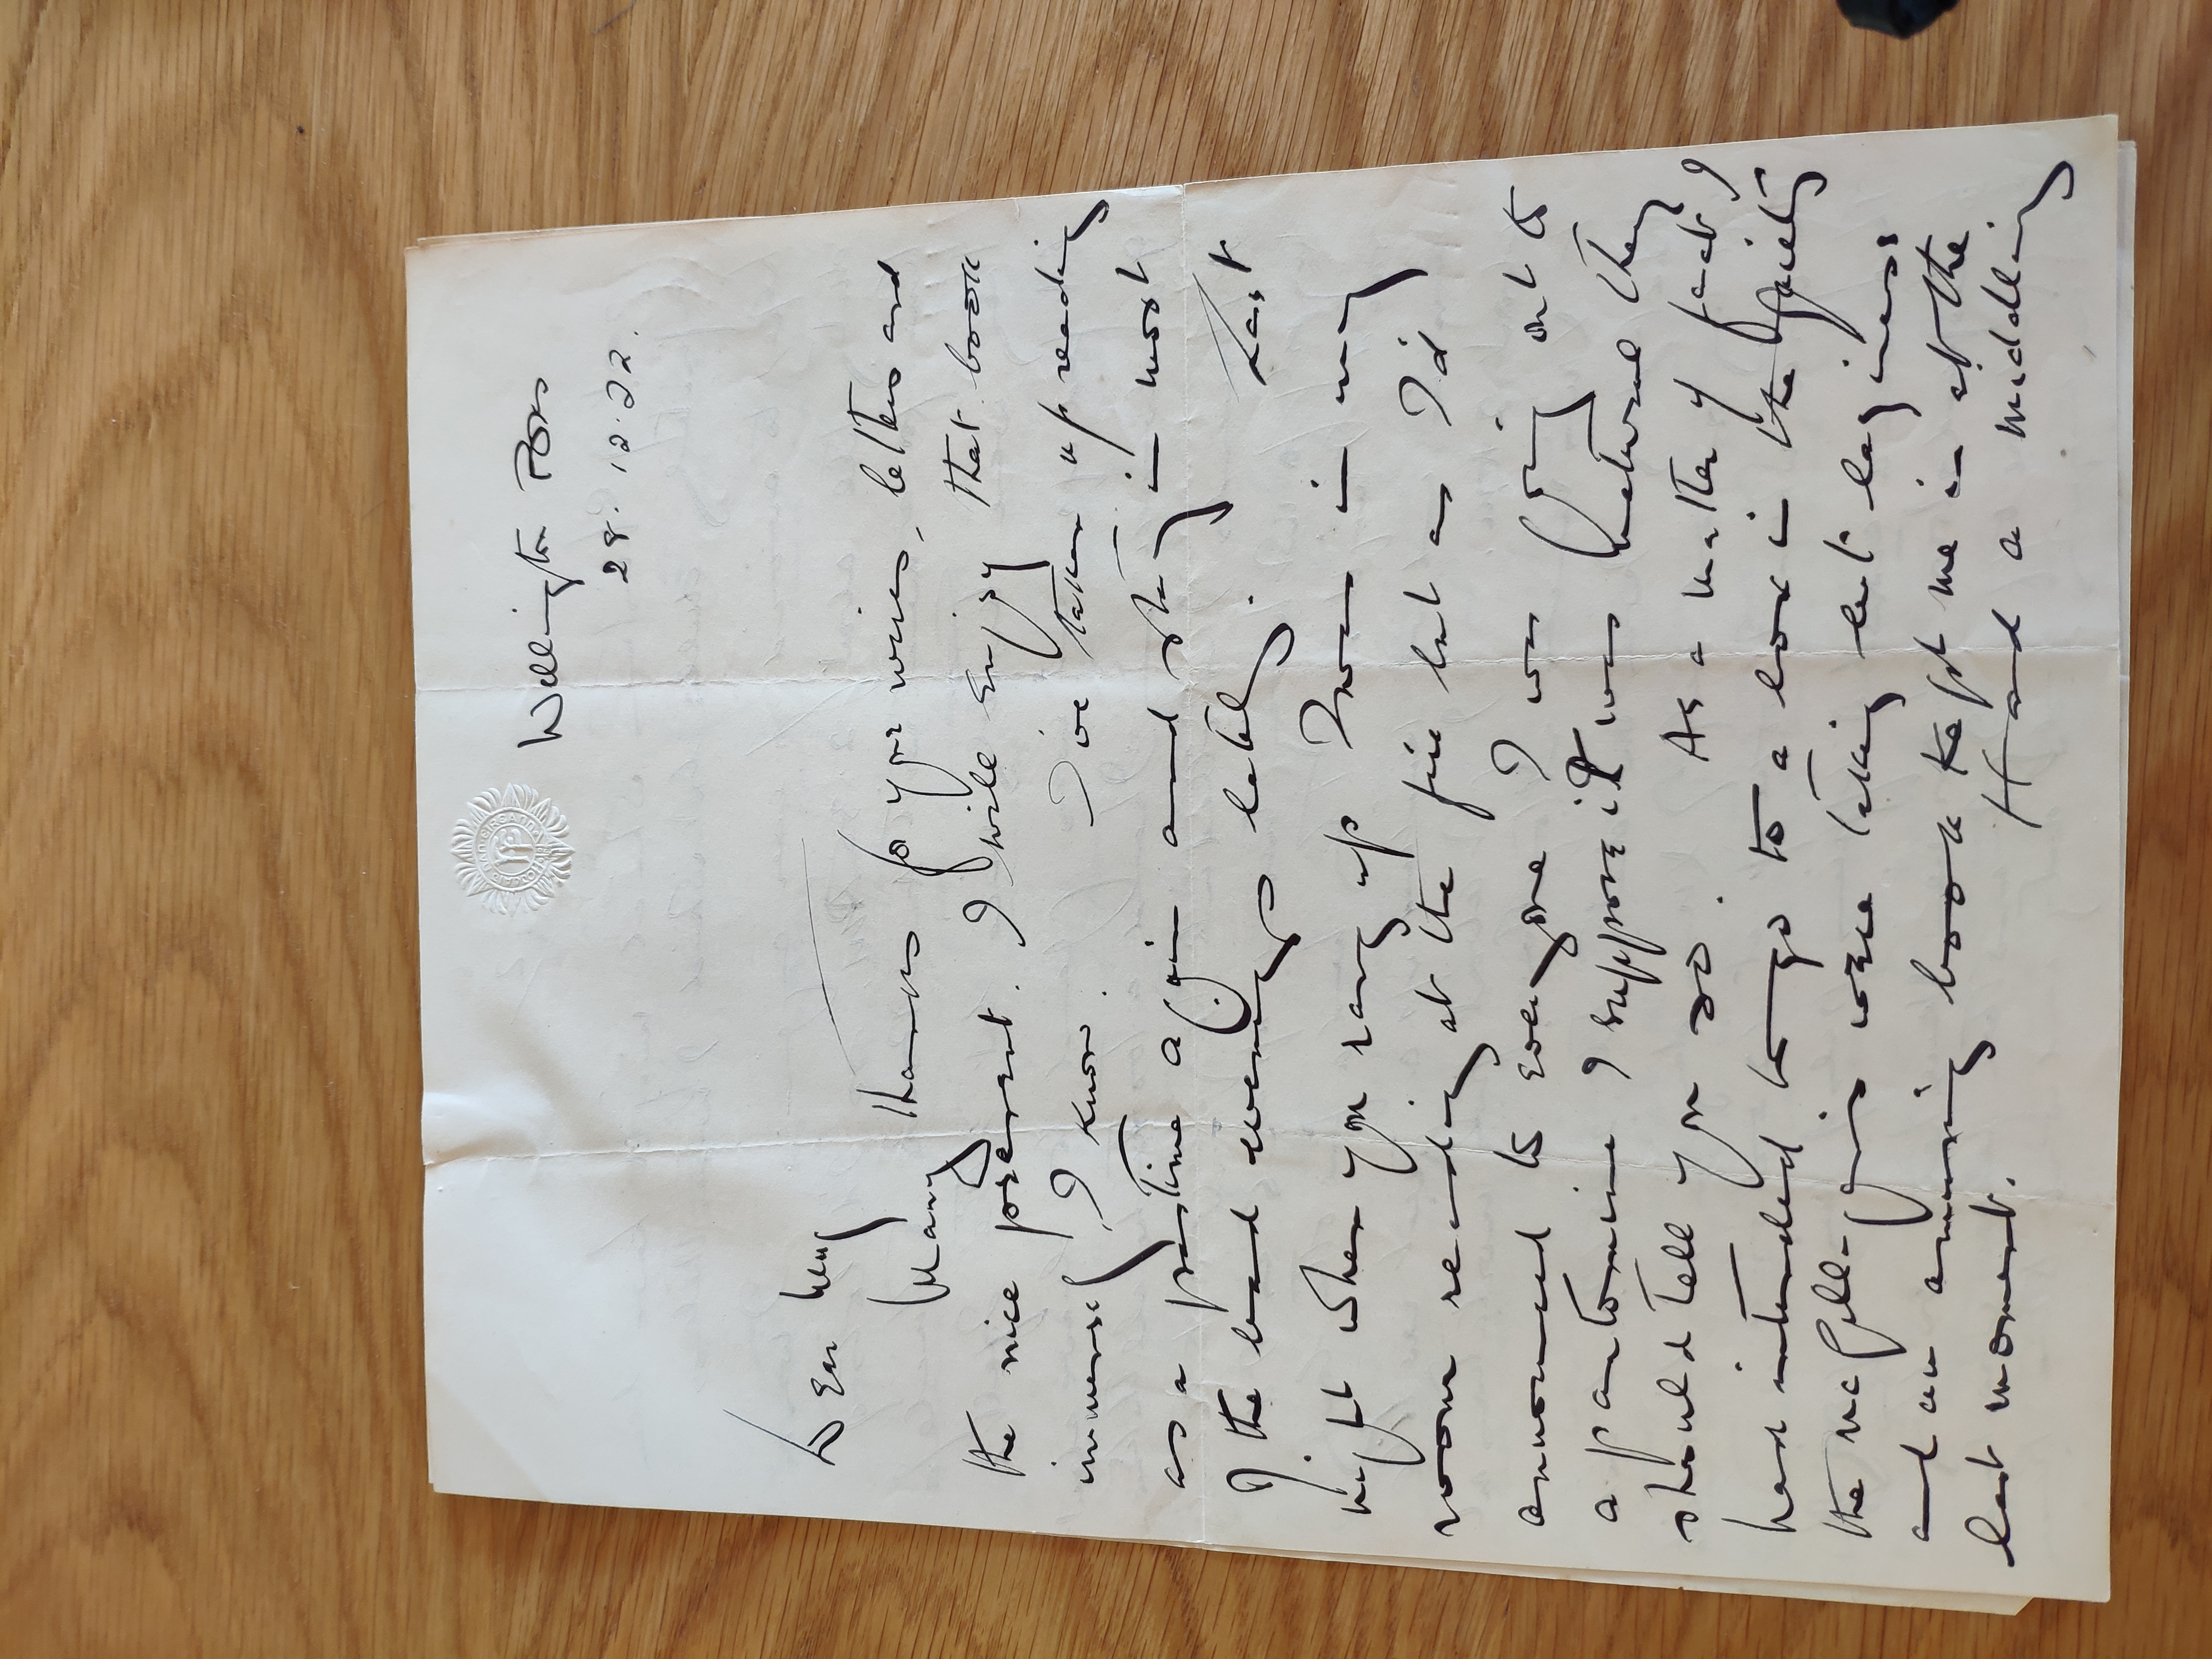 Wellington Bks
28.12.22.
Dear
Many thanks for your wire, letters and
the nice present. I will enjoy that book
immensely I know. I've taken up reading
as a pastime again and stay in most
of the bad evenings lately. Last
night when you rang up I was in my
room reading at the fire but as I'd
announced to everyone I was going out to
a pantomime I suppose it was natural they
should tell you so. As a matter of fact I
had intended to go to a box in the Gaiety
the
and an amusing book kept me in at the
last moment. Had a middling